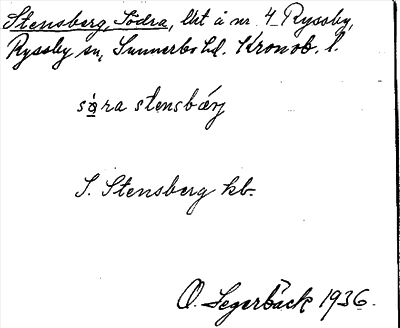 Stensberg, Södra, lht å nr 4 Ryssby,
Ryssby sn, Sunnerbo hd. Kronob. l.
sö̀ra stensbærj
S. Stensberg kb.
O. Segerbäck 1936.